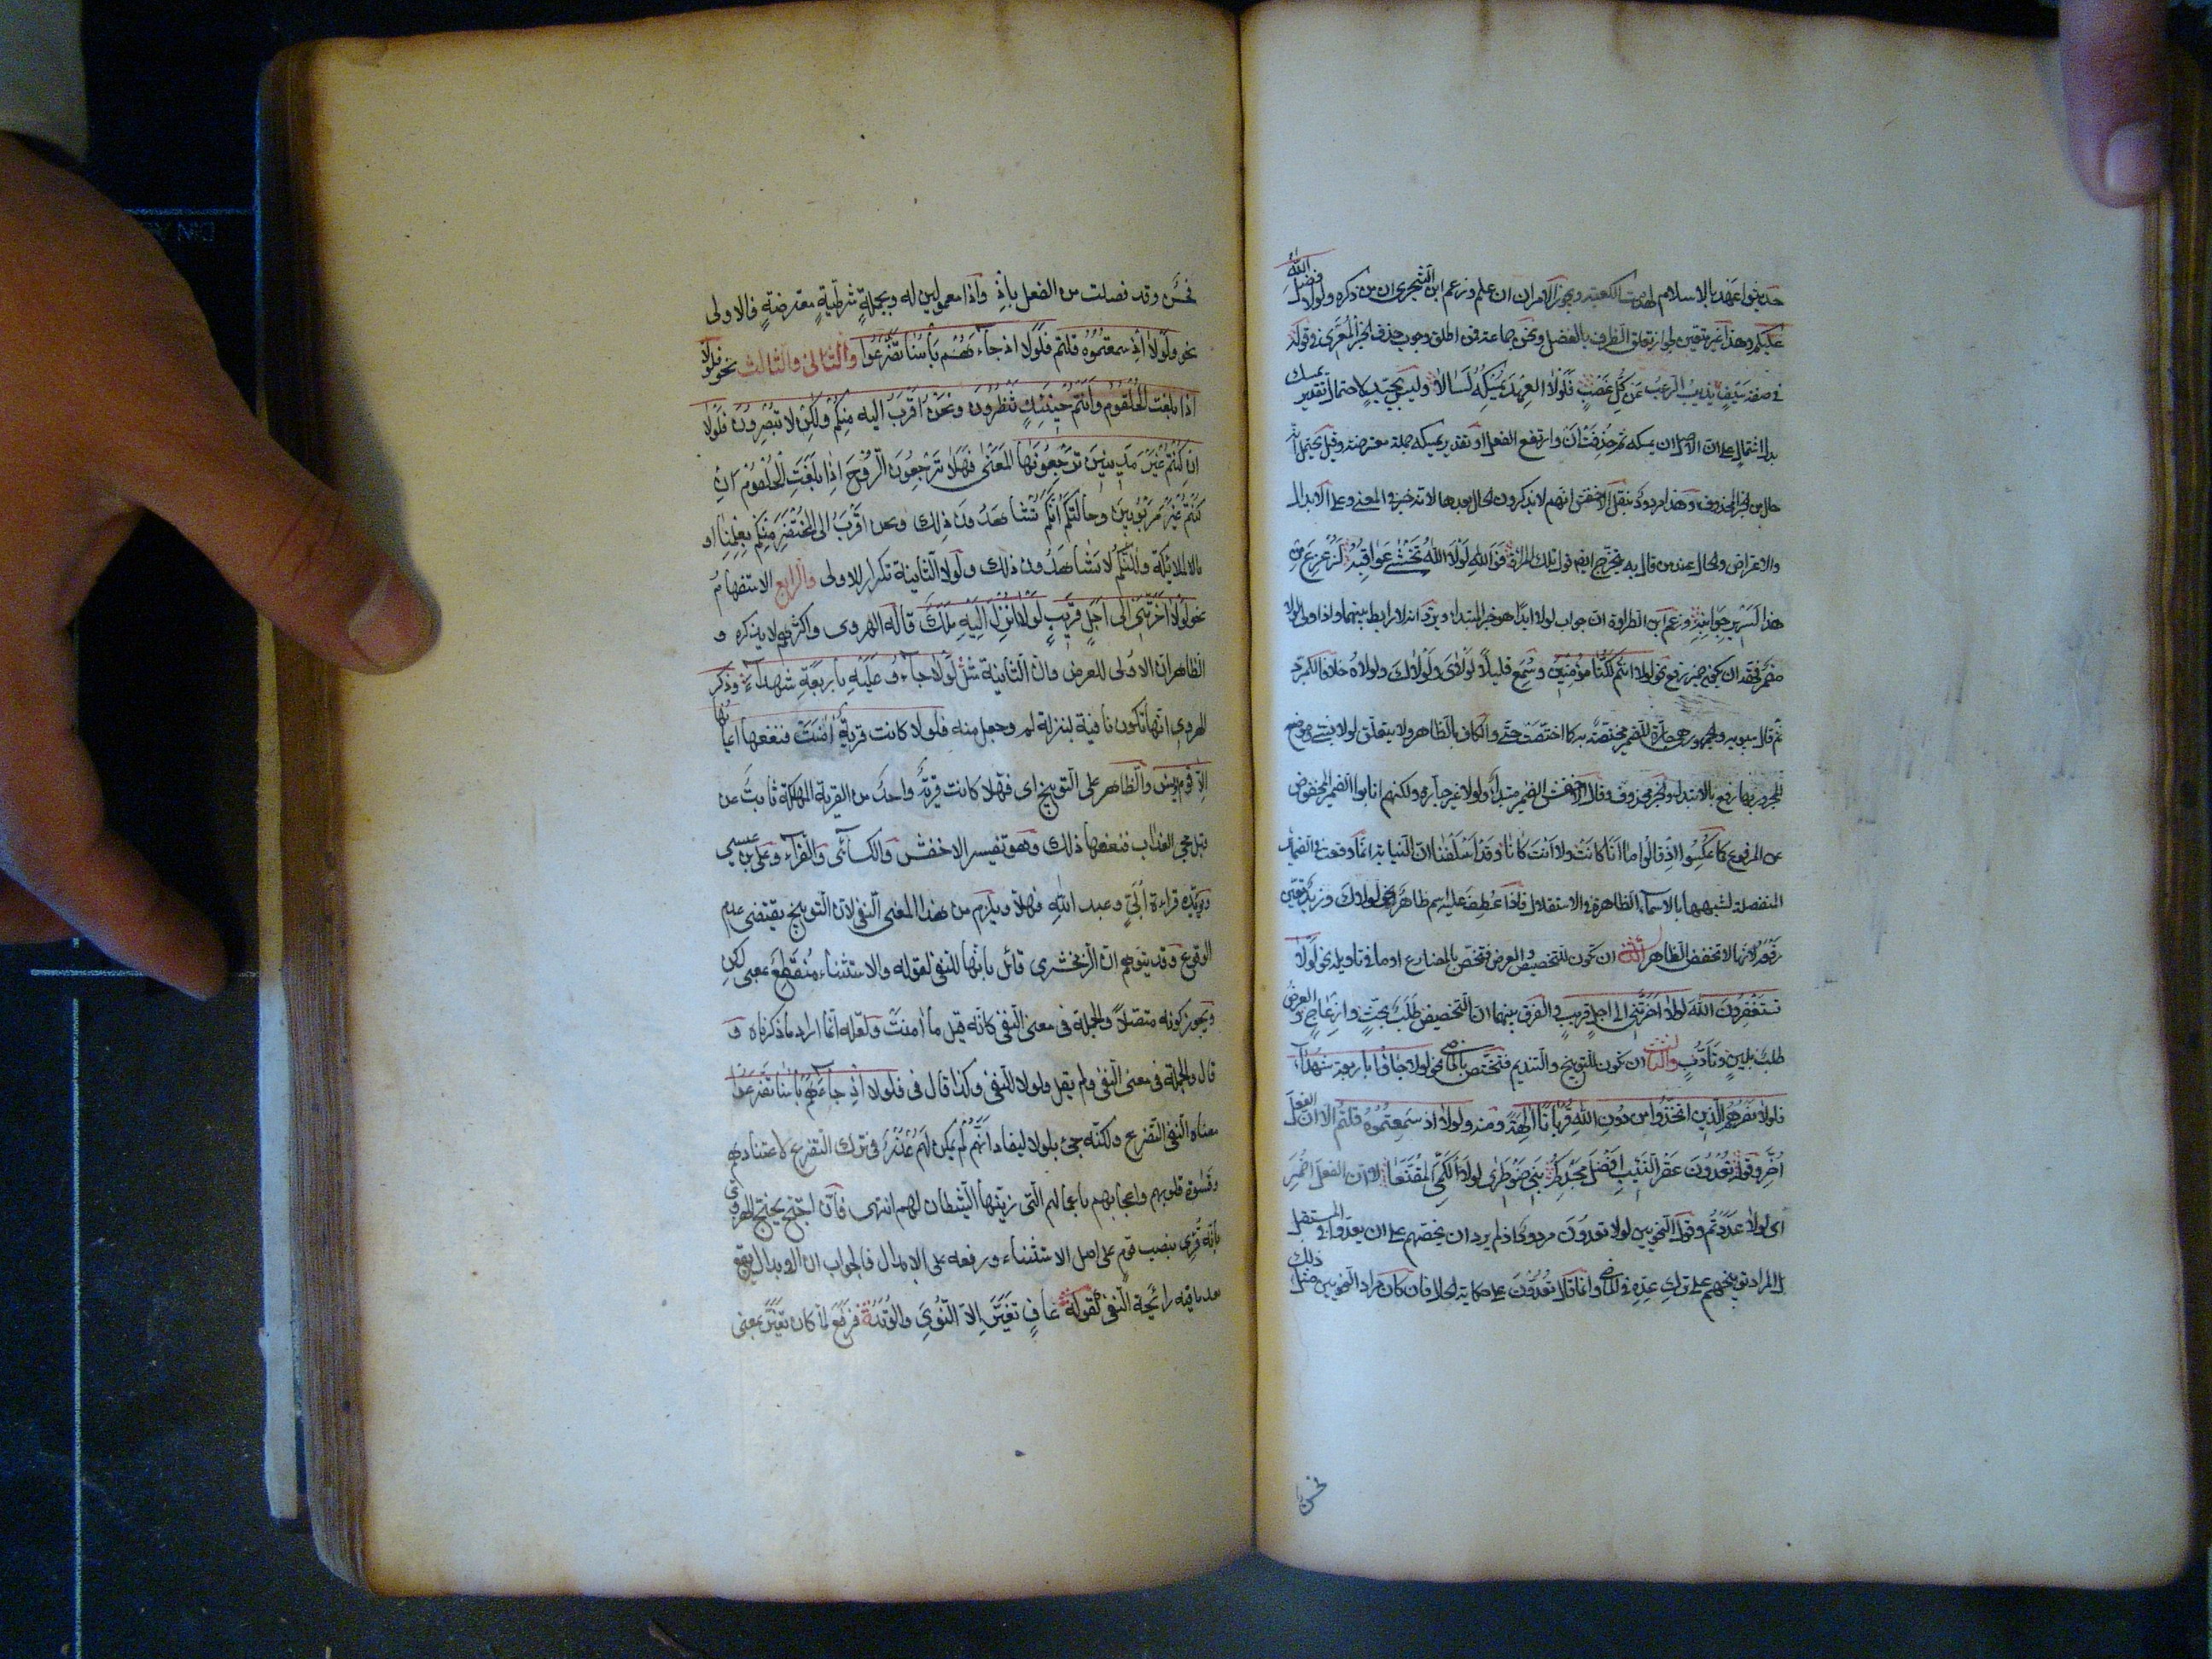 حديثوا عهد بالاسلام لهدمت الكعبة ويجوز الامران ان علم وزعم ابن الشجرى ان من ذكره ولولا فضل الله
عليكم وهذا غير متعين لجواز تعلق الظرف بالفضل ولحن جماعة ممن اطلق وجوب حذف الخبر المعرى فى قوله
فى صفة سيف يذيب الرعب من كل عضب فلولا الغمد يمسكه لسالا وليس بجيد لاحتمال تقدير يمسك
بدل اشتمال على ان الاصل ان يمسكه ثم حذفت ان وارتفع الفعل او تقدير يمسكه جملة معترضة وقيل يحتمل انه
حال من الخبر المحذوف وهذا مردود بنقل الاخفش انهم لا يذكرون الحال بعدها لانه خبر فى المعنى وعلى الابدال
والاعتراض والحال عند من قال به يتخرج ايضا قول تلك المراة فوالله لولا الله تخشى عواقبه لزعزع من
هذا السرير جوانبه وزعم ابن الطراوة ان جواب لولا ابدا هو خبر المبتدا ويرده انه لا رابط بينهما واذا ولى لولا
مضمر فحقه ان يكون ضمير رفع نحو لولا انتم لكنا مؤمنين وسمع قليلا لولاى ولولاك ولولاه خلافا للمبرد
ثم قال سيبويه والجمهور هى جارة للضمير مختصة به كما اختصت حتى والكاف بالظاهر ولا يتعلق لولا بشئ وموضع
المجرور بها رفع بالابتدا والخبر محذوف وقال الاخفش الضمير مبتدا ولولا غير جارة ولكنهم انابوا الضمير المخفوض
عن المرفوع كما عكسوا اذ قالوا ما انا كانت ولا انت كانا وقد اسلفنا ان النيابة انما وقعت فى الضمائر
المنفصلة لشبهها بالاسماء الظاهرة فى الاستقلال فاذا عطف عليه اسم ظاهر نحو لولاك وزيد تعين
رفعه لانها لا تخفض الظاهر الثانى ان تكون للتحضيض والعرض فتختص بالمضارع او ما فى تاويله نحو لولا
تستغفرون الله لولا اخرتنى الى اجل قريب والفرق بينهما ان التحضيض طلب بحث وازعاج والعرض
طلب بلين وتأدب والثالث ان تكون للتوبيخ والتنديم فتختص بالماضى نحو لولا جاؤا باربعة شهداء
فلولا نصرهم الذين اتخذوا من دون الله قربانا الهة ومنه ولولا اذ سمعتموه قلتم الا ان الفعل
اخر وقوله تعدون عقر النيب افضل مجدكم بنى ضوطرى لولا الكمى المقنعا الا ان الفعل اضمر
اى لولا عددتم وقول النحويين لولا تعدون مردود اذ لم يرد ان يحضهم على ان يعدوا فى المستقبل
بل المراد توبيخهم على ترك عده فى الماضى وانما قال تعدون على حكاية الحال فان كان مراد النحويين مثل ذلك
فحسن
فحسن وقد فصلت من الفعل باذ واذا معمولين له وبجملة شرطية معترضة فالاولى
نحو ولولا اذ سمعتموه قلتم فلولا اذ جاءهم بأسنا تضرعوا والثانى والثالث نحو فلولا
اذا بلغت الحلقوم وانتم حينئذ تنظرون ونحن اقرب اليه منكم ولكن لا تبصرون فلولا
ان كنتم غير مدينين ترجعونها المعنى فهلا ترجعون الروح اذا بلغت الحلقوم ان
كنتم غير مربوبين وحالتكم انكم تشاهدون ذلك ونحن اقرب الى المحتضر منكم بعلمنا او
بالملائكة ولكنكم لا تشاهدون ذلك ولولا الثانية تكرار للاولى والرابع الاستفهام
نحو لولا اخرتنى الى اجل قريب لولا انزل اليه ملك قاله الهروى واكثرهم لا يذكره و
الظاهر ان الاولى للعرض وان الثانية مثل لولا جاءو عليه باربعة شهداء وذكر
الهروى انها تكون نافية بمنزلة لم وجعل منه فلولا كانت قرية امنت فنفعها ايمانها
الا قوم يونس والظاهر على التوبيخ اى فهلا كانت قرية واحدة من القرية المهلكة تابت عن
قبل مجئ العذاب فنفعها ذلك وهو تفسير الاخفش والكسائى والفراء وعلى بن عيسى
ويؤيده قراءة ابى وعبد الله فهلا ويلزم من هذا المعنى النفى لان التوبيخ يقتضى عدم
الوقوع وقد يتوهم ان الزمخشرى قائل بانها للنفى لقوله والاستثناء منقطع بمعنى لكن
ويجوز كونه متصلا والجملة فى معنى النفى كانه قيل ما امنت ولعله انما اراد ما ذكرناه و
قال والجملة فى معنى النفى ولم يقل ولولا للنفى وكذا قال فى فلولا اذ جاءهم بأسنا تضرعوا
معناه النفى التضرع ولكنه جئ بلولا ليفاد انهم لم يكن لهم عذر فى ترك التضرع الا عنادهم
وقسوة قلوبهم واعجابهم باعمالهم التى زينها الشيطان لهم انتهى فان احتج محتج للهروى
بانه قرئ بنصب قوم على اصل الاستثناء ورفعه على الابدال فالجواب ان الابدال يقع
بعد ما فيه رائحة النفى لقوله عاف تغير الا النؤى والوتد فرفع لما كان تغير بمعنى